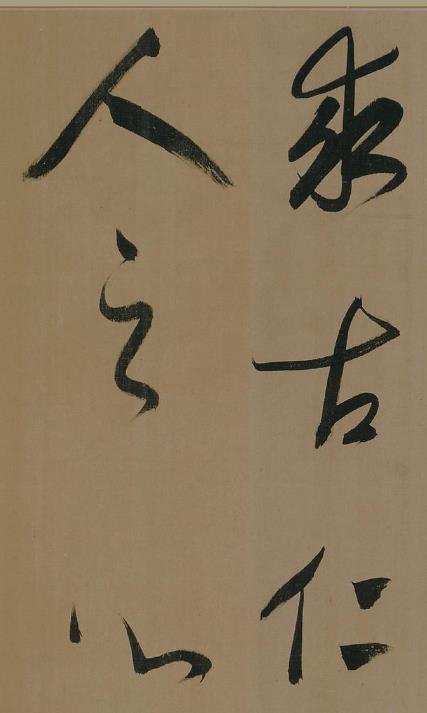 求古仁
人之心